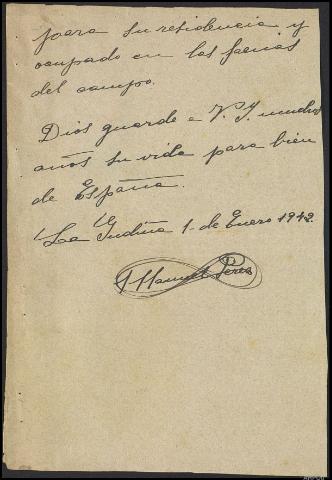 para su residencia y
ocupado en las faenas
del campo.
Dios guarde a V. I. muchos
años su vida para bien
de España.
La Gudiña 1 de Enero 1942.
Manuel Perez